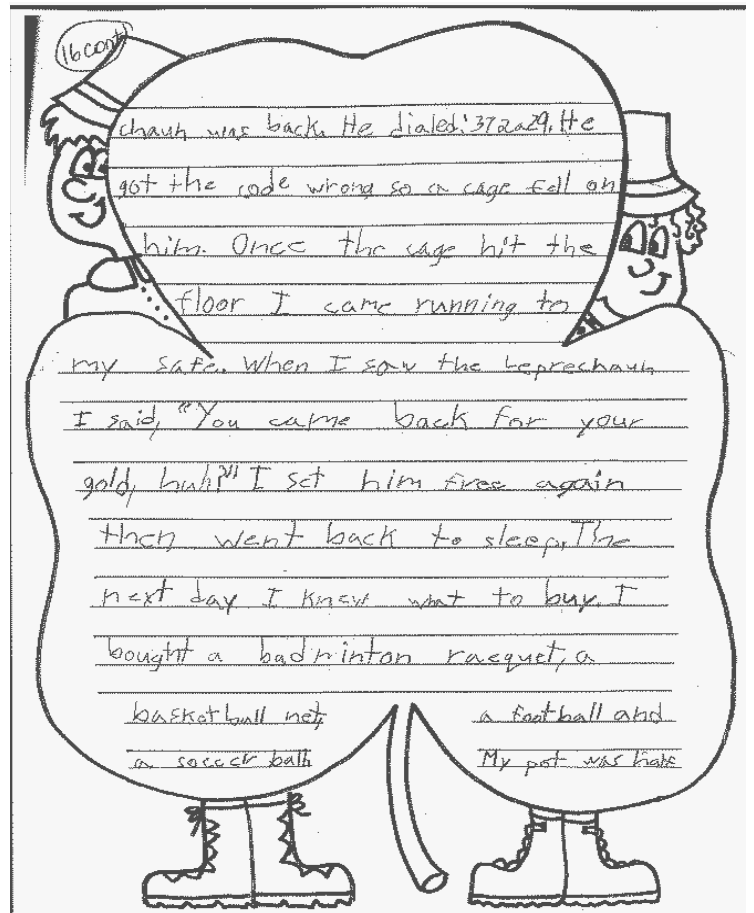 16 cont
chaun was back. He dialed: 372a29. He
got the code wrong so a cage fell on
him. Once the cage hit the
floor I came running to
my safe. When I saw the Leprechaun
I said, "You came back for your
gold, huh?" I set him free again
then went back to sleep. The
next day I knew what to buy. I
bought a badminton racquet, a
basketball net, a football and
a soccer ball. My pot was